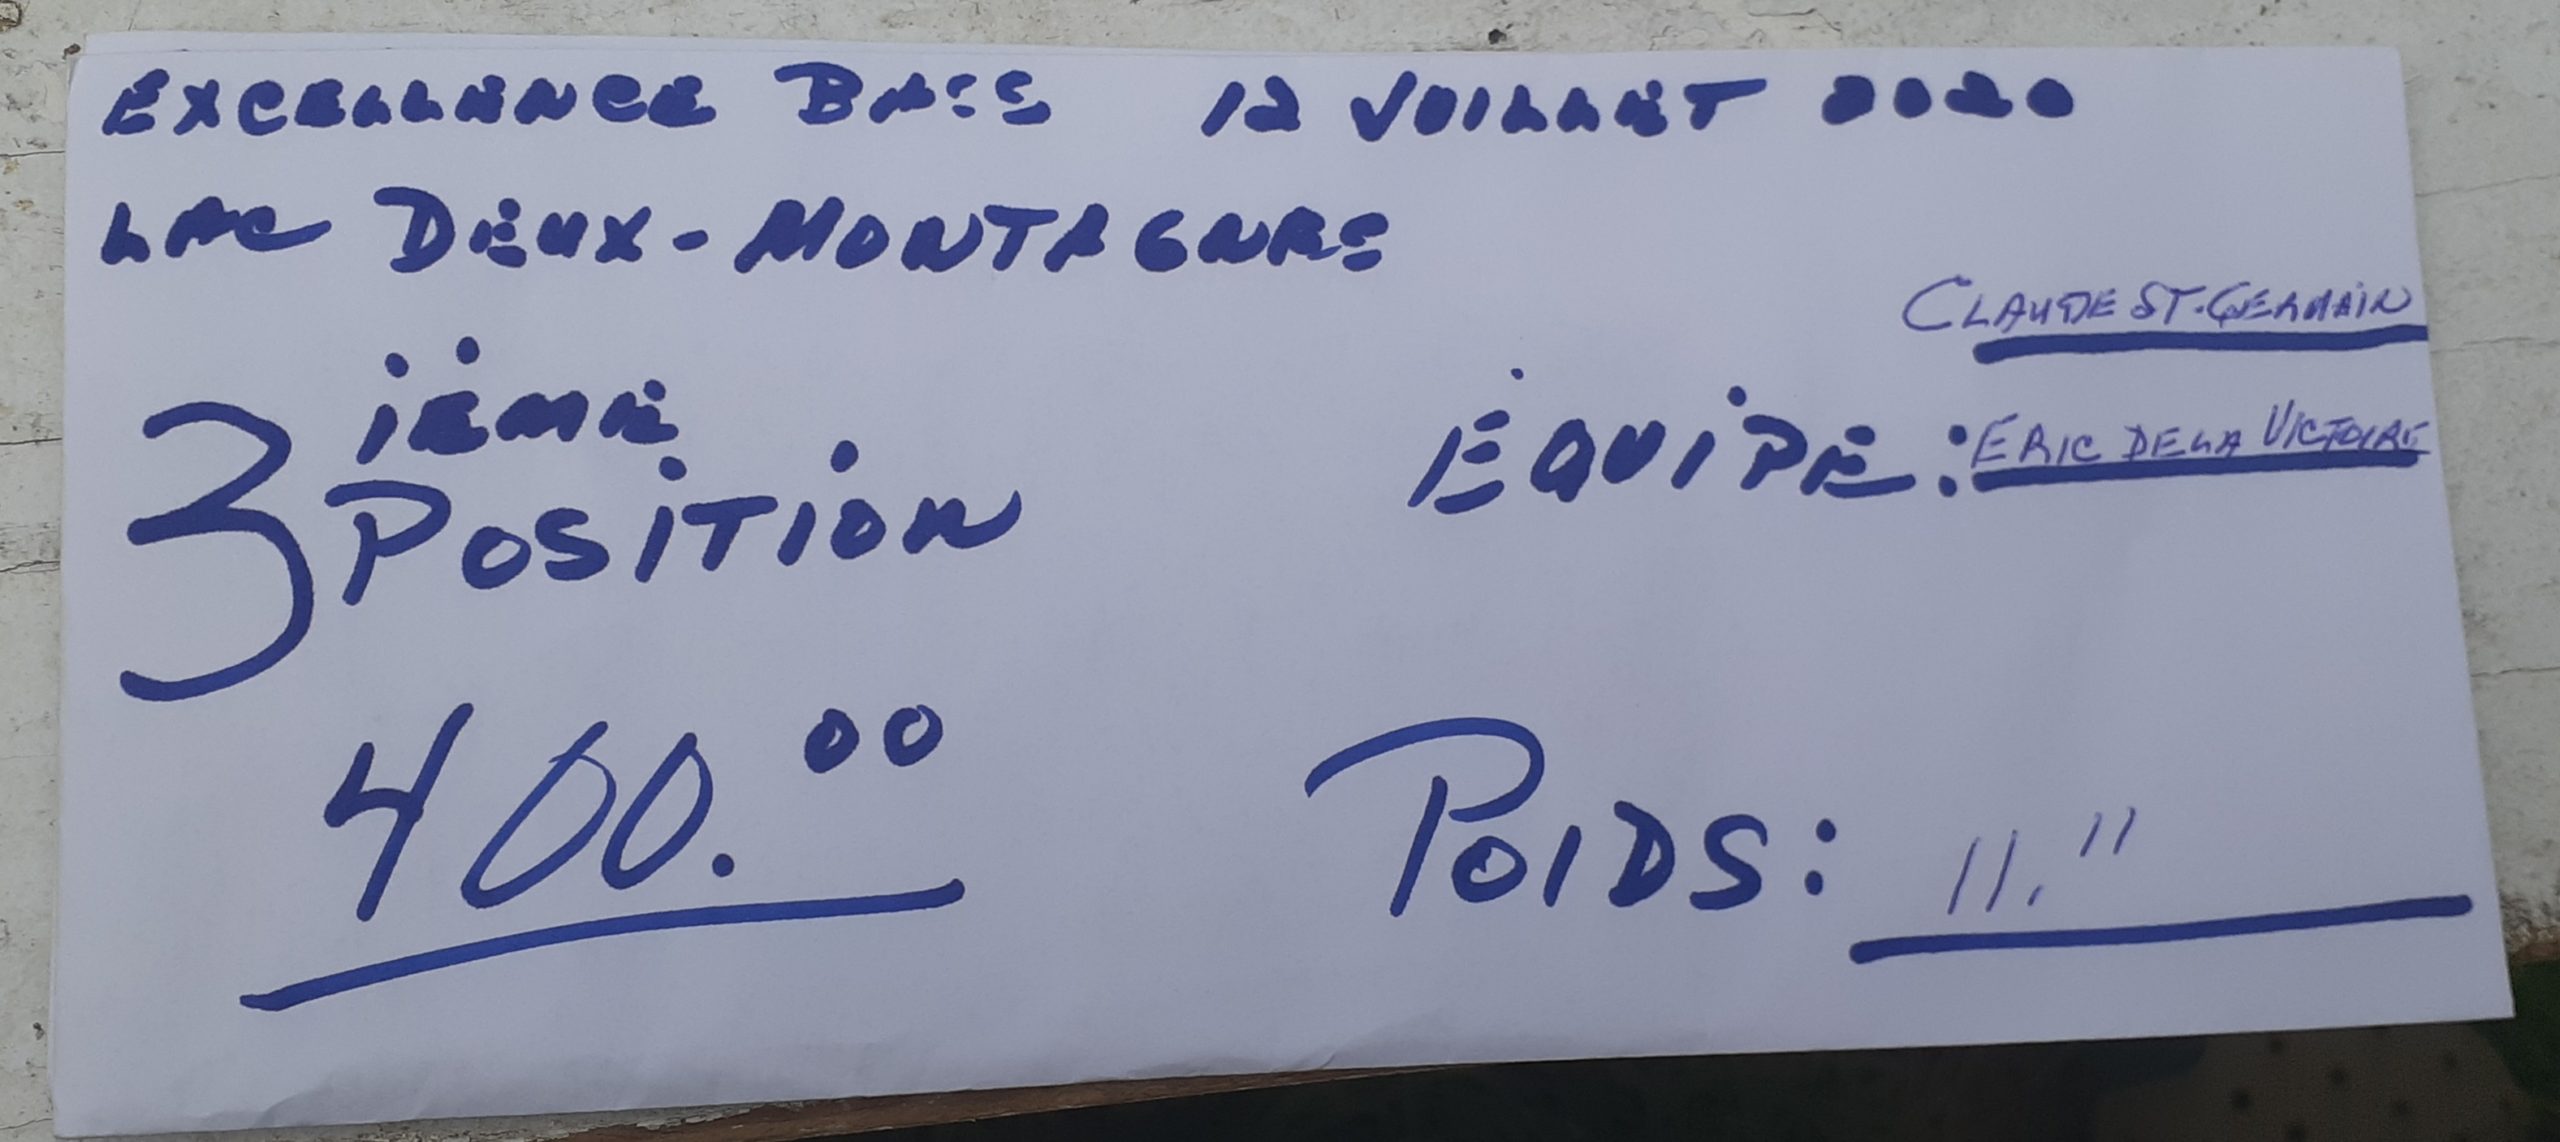 EXCELLENCE BASS 12 JUILLET 2020
LAC DEUX-MONTAGNES
CLAUDE ST-GERMAIN
3 ièME POSITION
ÉQUIPE: ERIC DE LA VICTOIRE
400.00
POIDS: 11.11